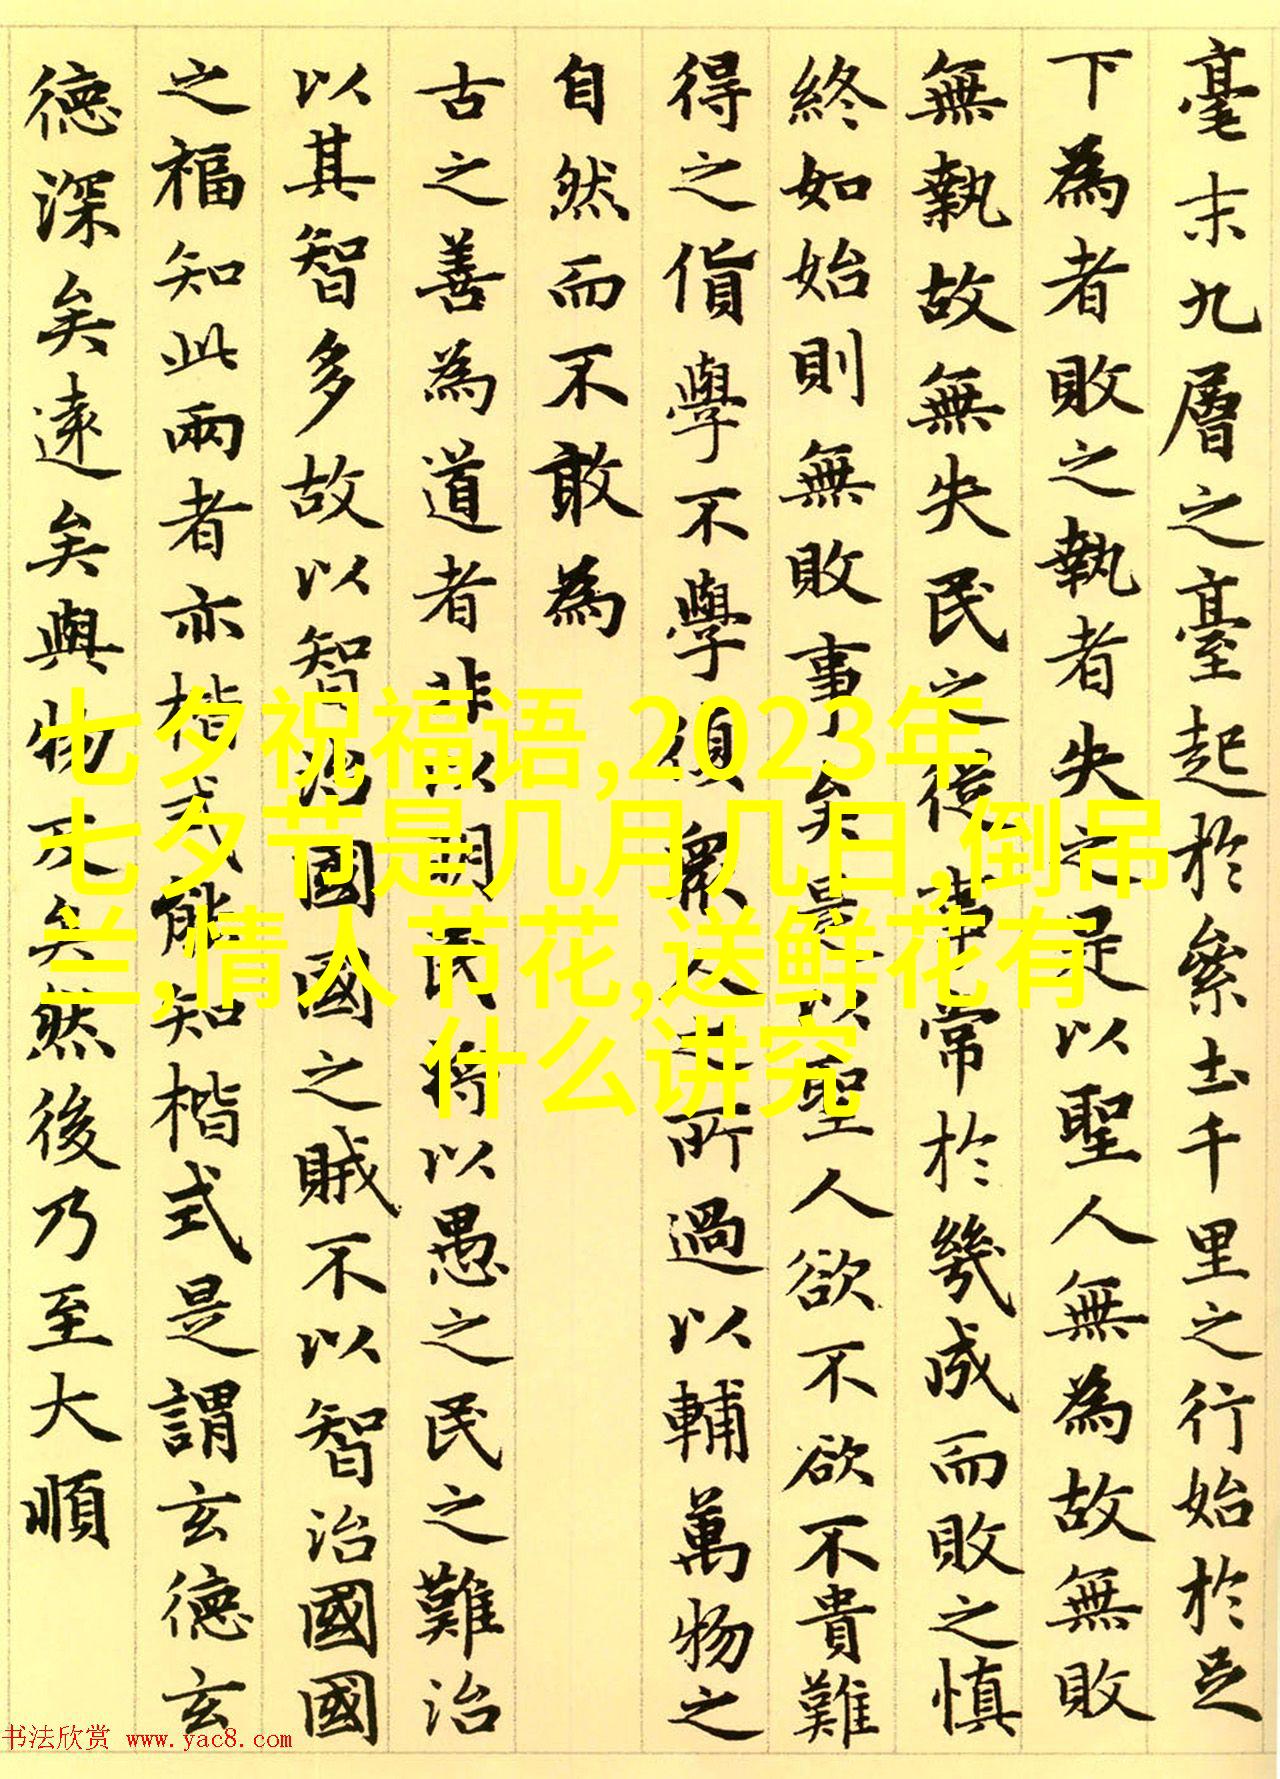 毫末九層之臺起於絫土千里之行始於足
下為者敗之執者失之是以聖人無為故無敗
無執故無失民之從事常於幾成而敗之慎
終如始則無敗事矣是以聖人欲不欲不貴難
得之貨學不學復眾人之所過以輔萬物之
自然而不敢為
古之善為道者非以明民將以愚之民之難治
以其智多故以智治國國之賊不以智治國國
之福知此兩者亦楷式能知楷式是謂玄德玄
德深矣遠矣與物反矣然後乃至大順
七夕祝福语,2023年
七夕节是几月几日,倒吊
兰,情人节花,送鲜花有
什么讲究
书法欣赏 www.yac8.com